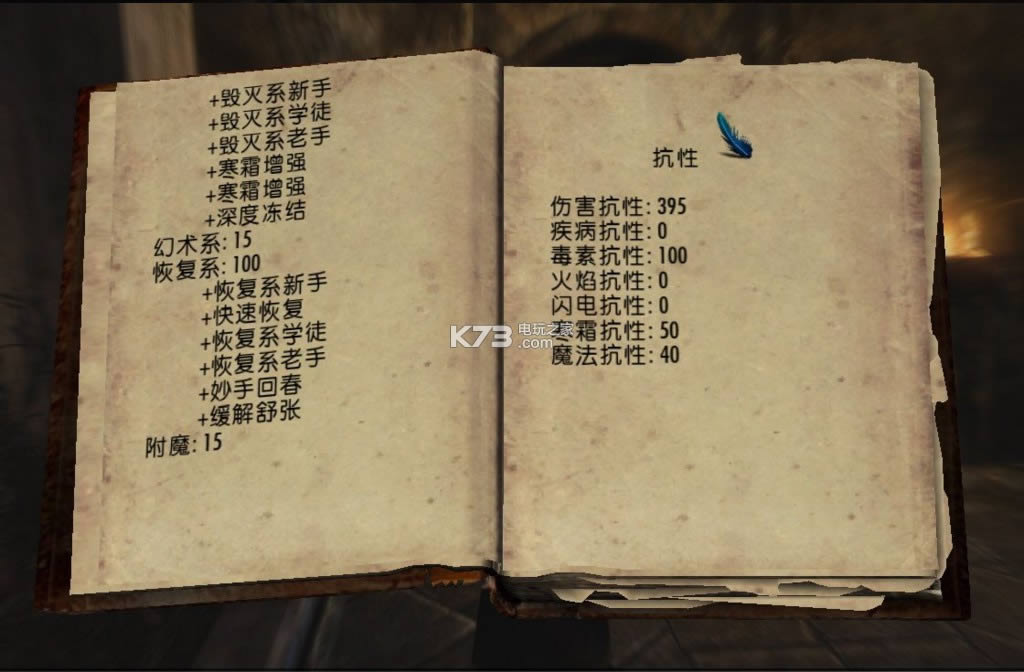 +毁灭系新手
+毁灭系学徒
+毁灭系老手
+寒霜增强
+寒霜增强
+深度冻结
幻术系: 15
恢复系: 100
+恢复系新手
+快速恢复
+恢复系学徒
+恢复系老手
+妙手回春
+缓解舒张
附魔: 15
抗性
伤害抗性: 395
疾病抗性: 0
毒素抗性: 100
火焰抗性: 0
闪电抗性: 0
寒霜抗性: 50
魔法抗性: 40
K73 电玩之家
.com